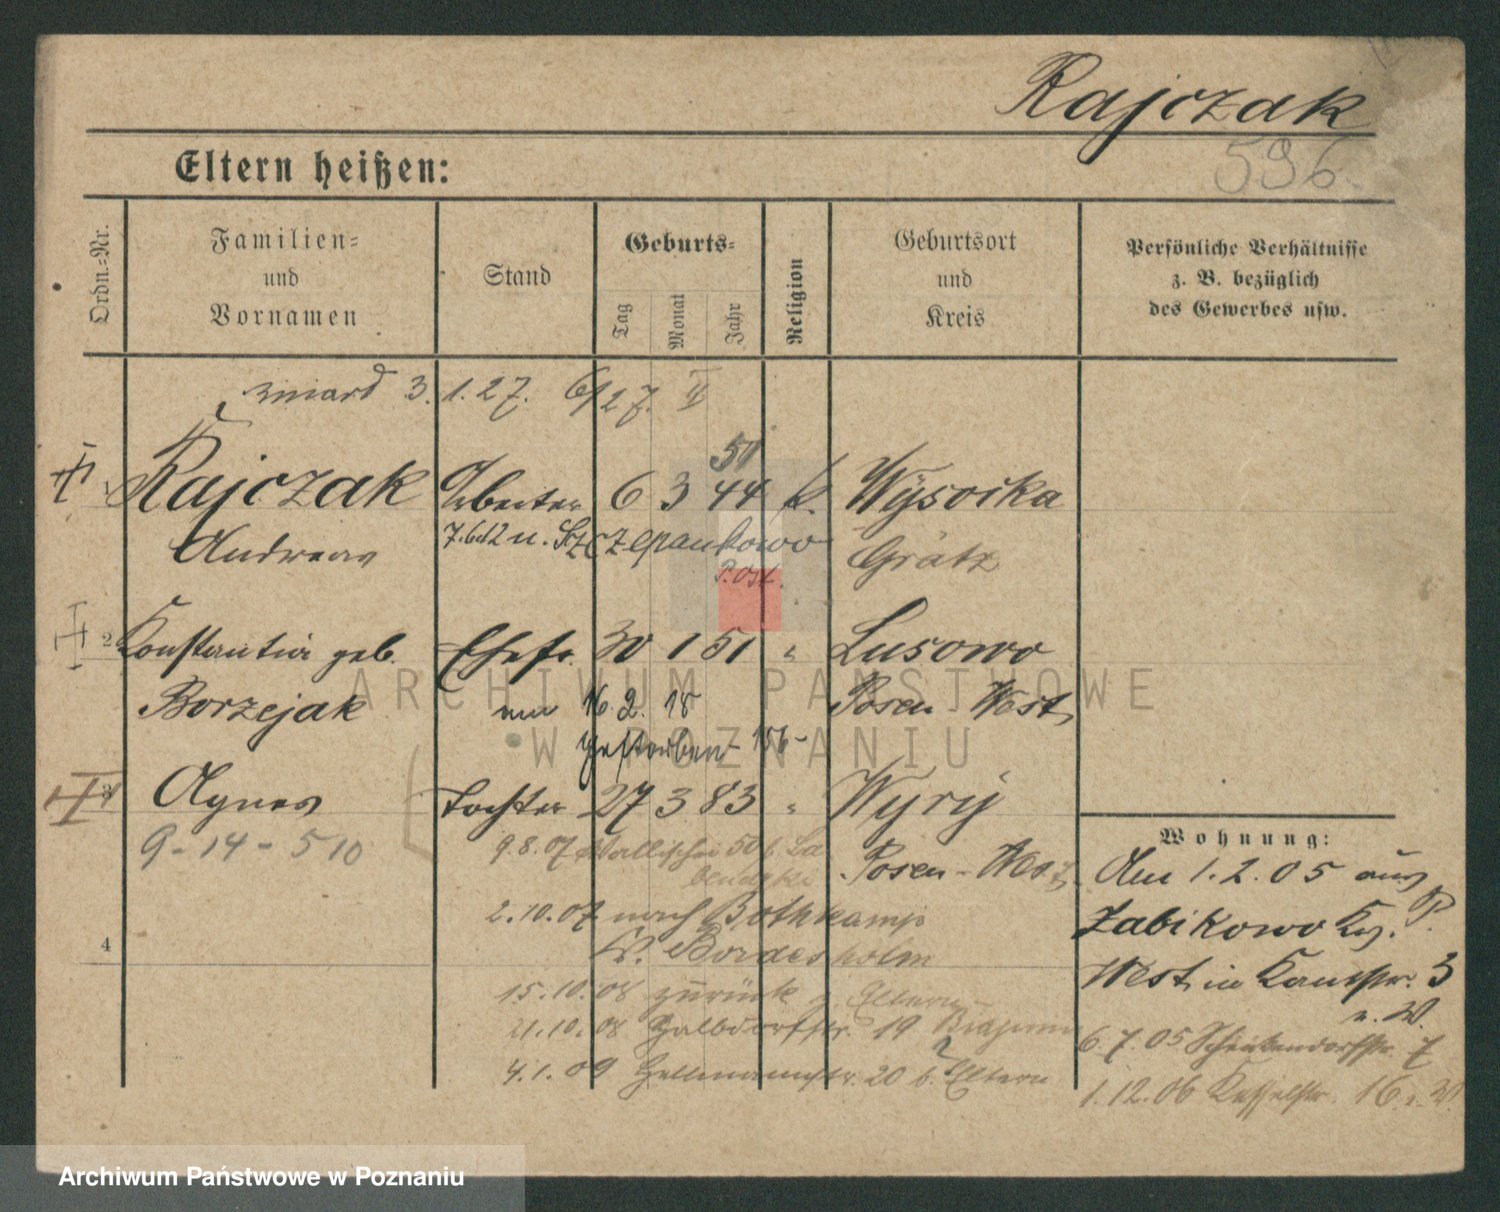 Rajczak
596.
Eltern heißen:
Ordn.-Nr.
Familien-
und
Vornamen
Stand
Geburts-
Tag
Monat
Jahr
Religion
Geburtsort
und
Kreis
Persönliche Verhältnisse
z. B. bezüglich
des Gewerbes usw.
zmarł 3. 1. 27. 6/1 27. II
50
Rajczak Arbeiter 6 3 44 k. Wysocka
Andreas 7.6.12 n. Szczepankowo Grätz
P. Ost.
2 Konstantia geb. Ehefr. 30 1 51 " Lusowo
Borzejak am 16. 2. 18 Posen West
gestorben 156-
3 Agnes Tochter 27 3 83 " Wyry
9 - 14 - 510 9.8.07 Wallischei 50 b. Posen - West
2.10.07 nach Bothkamp
Kr. Bordesholm
4
15.10.08 zurück z. Eltern
21.10.08 Halbdorfstr. 19
4.1.09 20 b. Eltern
Wohnung:
Am 1. 2. 05 aus
Zabikowo Krs. P.
West in Kantstr. 3
n. W.
6. 7. 05 7
1. 12. 06 Kesselstr. 16 n. W
ARCHIWUM PAŃSTWOWE
W POZNANIU
Archiwum Państwowe w Poznaniu